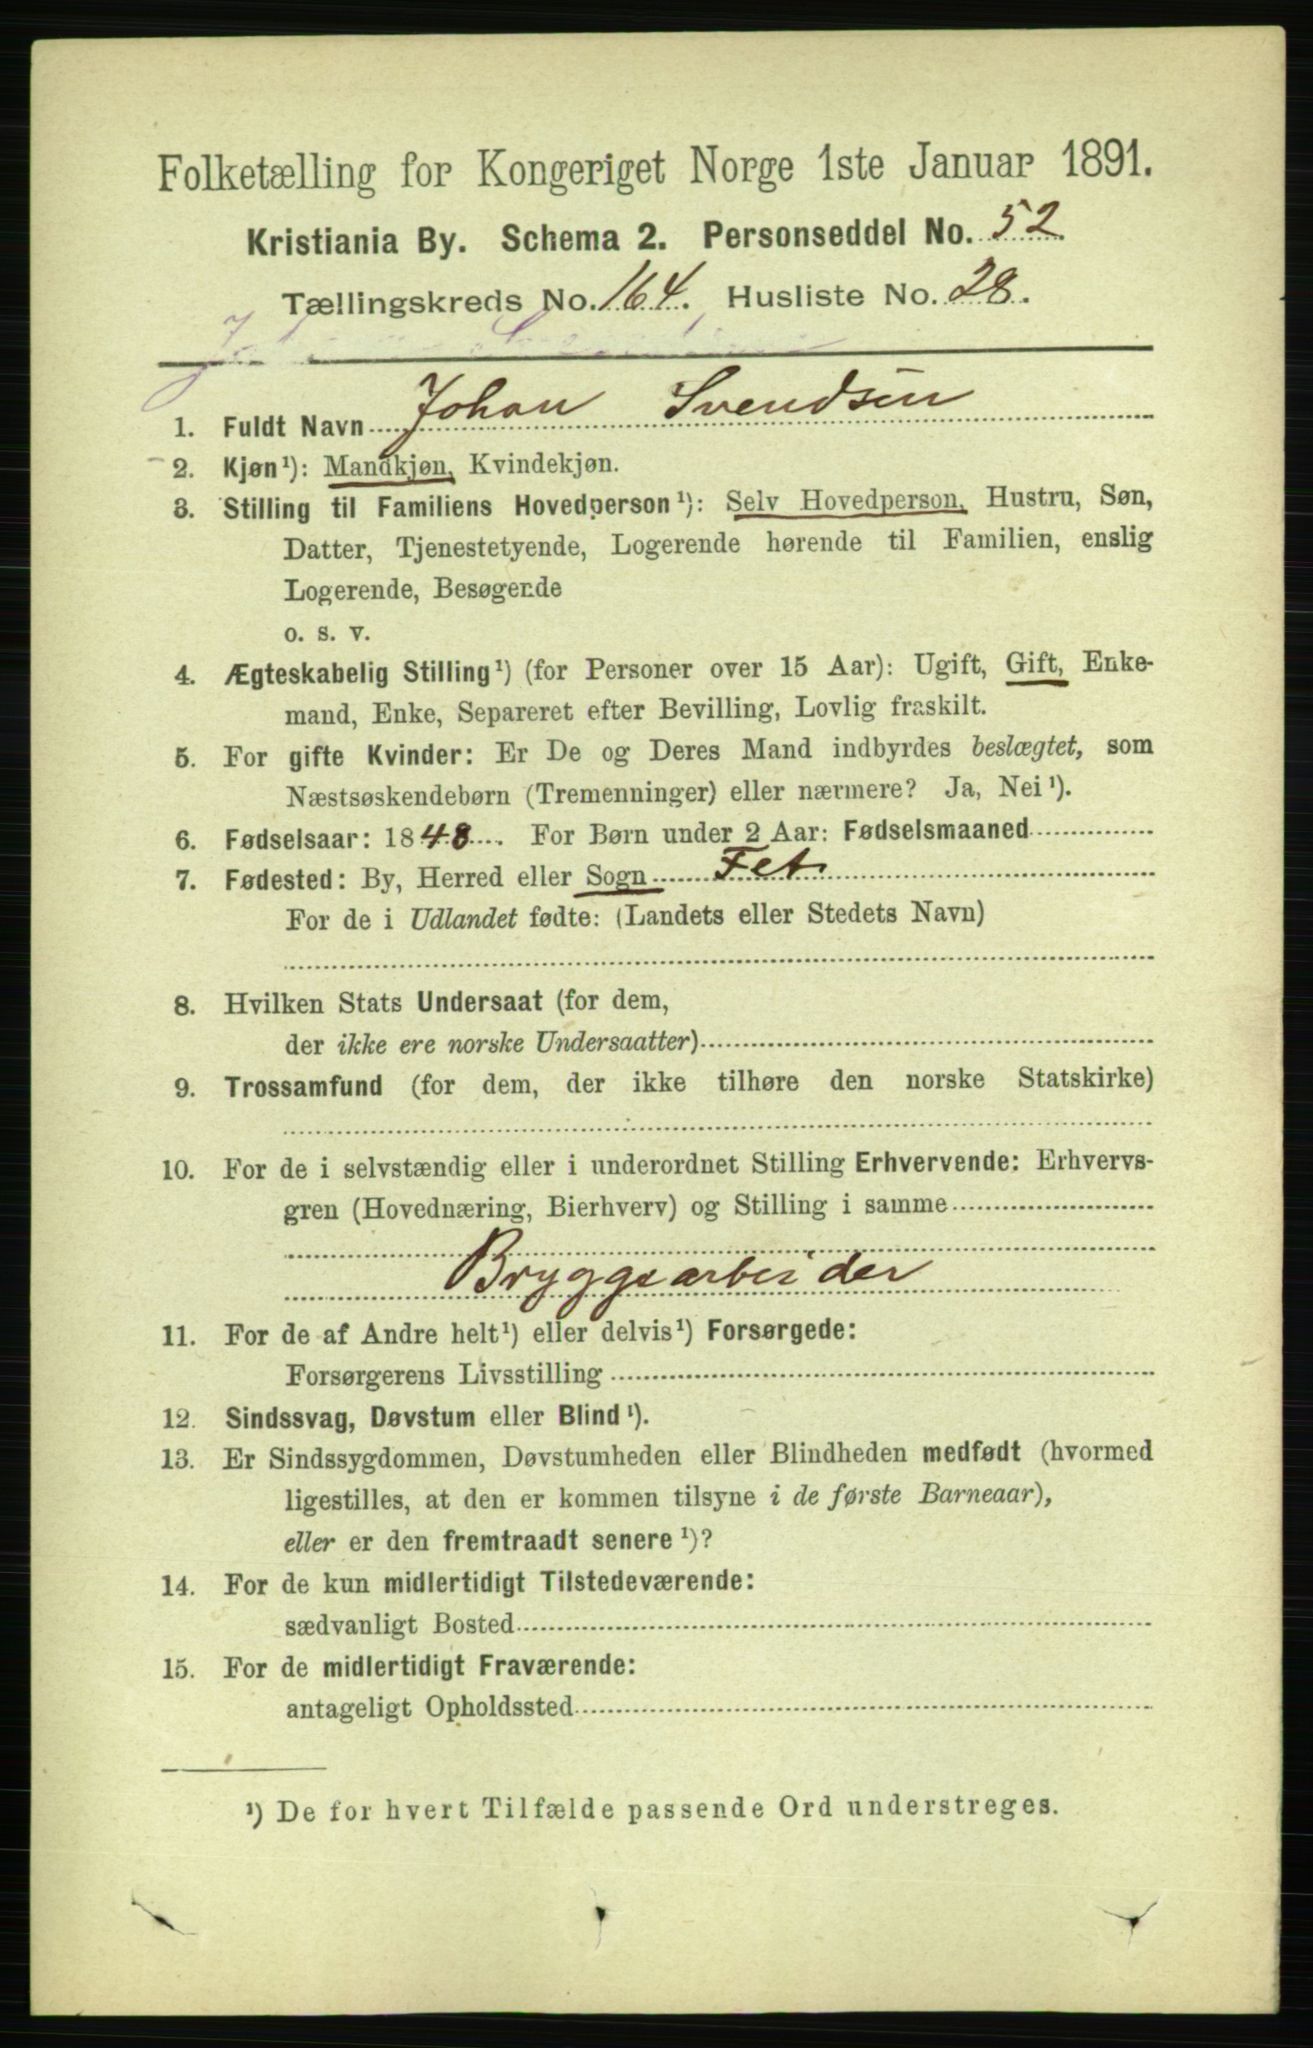 Folketælling for Kongeriget Norge 1ste Januar 1891.
Kristiania By. Schema 2. Personseddel No. 52.
Tællingskreds No. 164. Husliste No. 28.
1. Fuldt Navn Johan Svendsen
2. Kjøn¹): Mandkjøn, Kvindekjøn.
3. Stilling til Familiens Hovedperson¹): Selv Hovedperson, Hustru, Søn,
Datter, Tjenestetyende, Logerende hørende til Familien, enslig
Logerende, Besøgende
o. s. v.
4. Ægteskabelig Stilling¹) (for Personer over 15 Aar): Ugift, Gift, Enke-
mand, Enke, Separeret efter Bevilling, Lovlig fraskilt.
5. For gifte Kvinder: Er De og Deres Mand indbyrdes beslægtet, som
Næstsøskendebørn (Tremenninger) eller nærmere? Ja, Nei¹).
6. Fødselsaar: 1848. For Børn under 2 Aar: Fødselsmaaned
7. Fødested: By, Herred eller Sogn Fet
For de i Udlandet fødte: (Landets eller Stedets Navn)
8. Hvilken Stats Undersaat (for dem,
der ikke ere norske Undersaatter)
9. Trossamfund (for dem, der ikke tilhøre den norske Statskirke)
10. For de i selvstændig eller i underordnet Stilling Erhvervende: Erhvervs-
gren (Hovednæring, Bierhverv) og Stilling i samme
Bryggearbeider
11. For de af Andre helt¹) eller delvis¹) Forsørgede:
Forsørgerens Livsstilling
12. Sindssvag, Døvstum eller Blind¹).
13. Er Sindssygdommen, Døvstumheden eller Blindheden medfødt (hvormed
ligestilles, at den er kommen tilsyne i de første Barneaar),
eller er den fremtraadt senere¹)?
14. For de kun midlertidigt Tilstedeværende:
sædvanligt Bosted
15. For de midlertidigt Fraværende:
antageligt Opholdssted
¹) De for hvert Tilfælde passende Ord understreges.